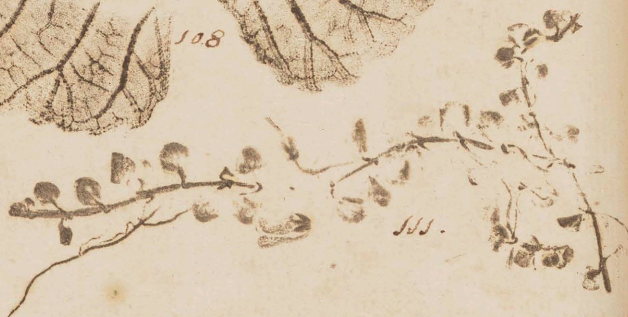 108
111.